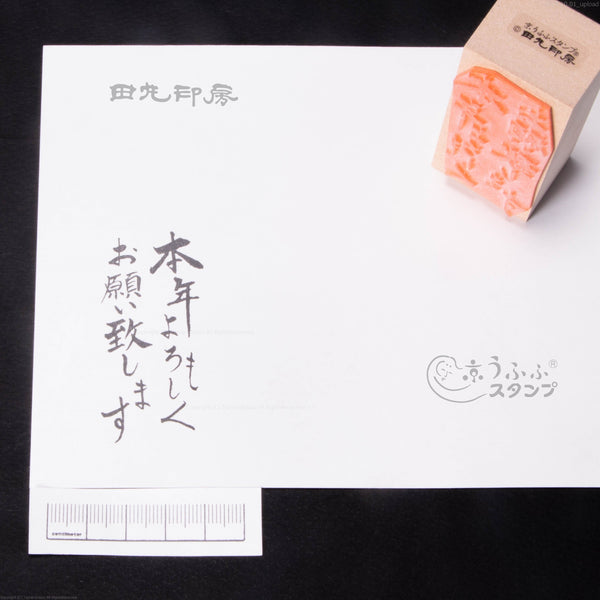 田丸印房
京うふふスタンプ®
©田丸印房
本年もよろしく
お願い致します
京うふふ®
スタンプ
centimeter